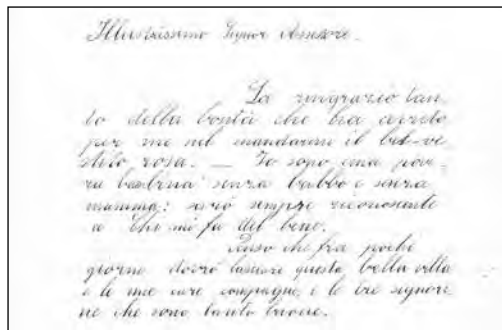 Illustrissimo Signor Assessore.
La ringrazio tan-
to della bontà che ha avuto
per me nel mandarmi il bel ve-
stito rosa. — Io sono una pove-
ra bambina senza babbo e senza
mamma: sarò sempre riconoscente
a chi mi fa del bene.
Penso che fra pochi
giorni dovrò lasciare questa bella villa
e le mie care compagne, e le tre signori-
ne che sono tanto buone.